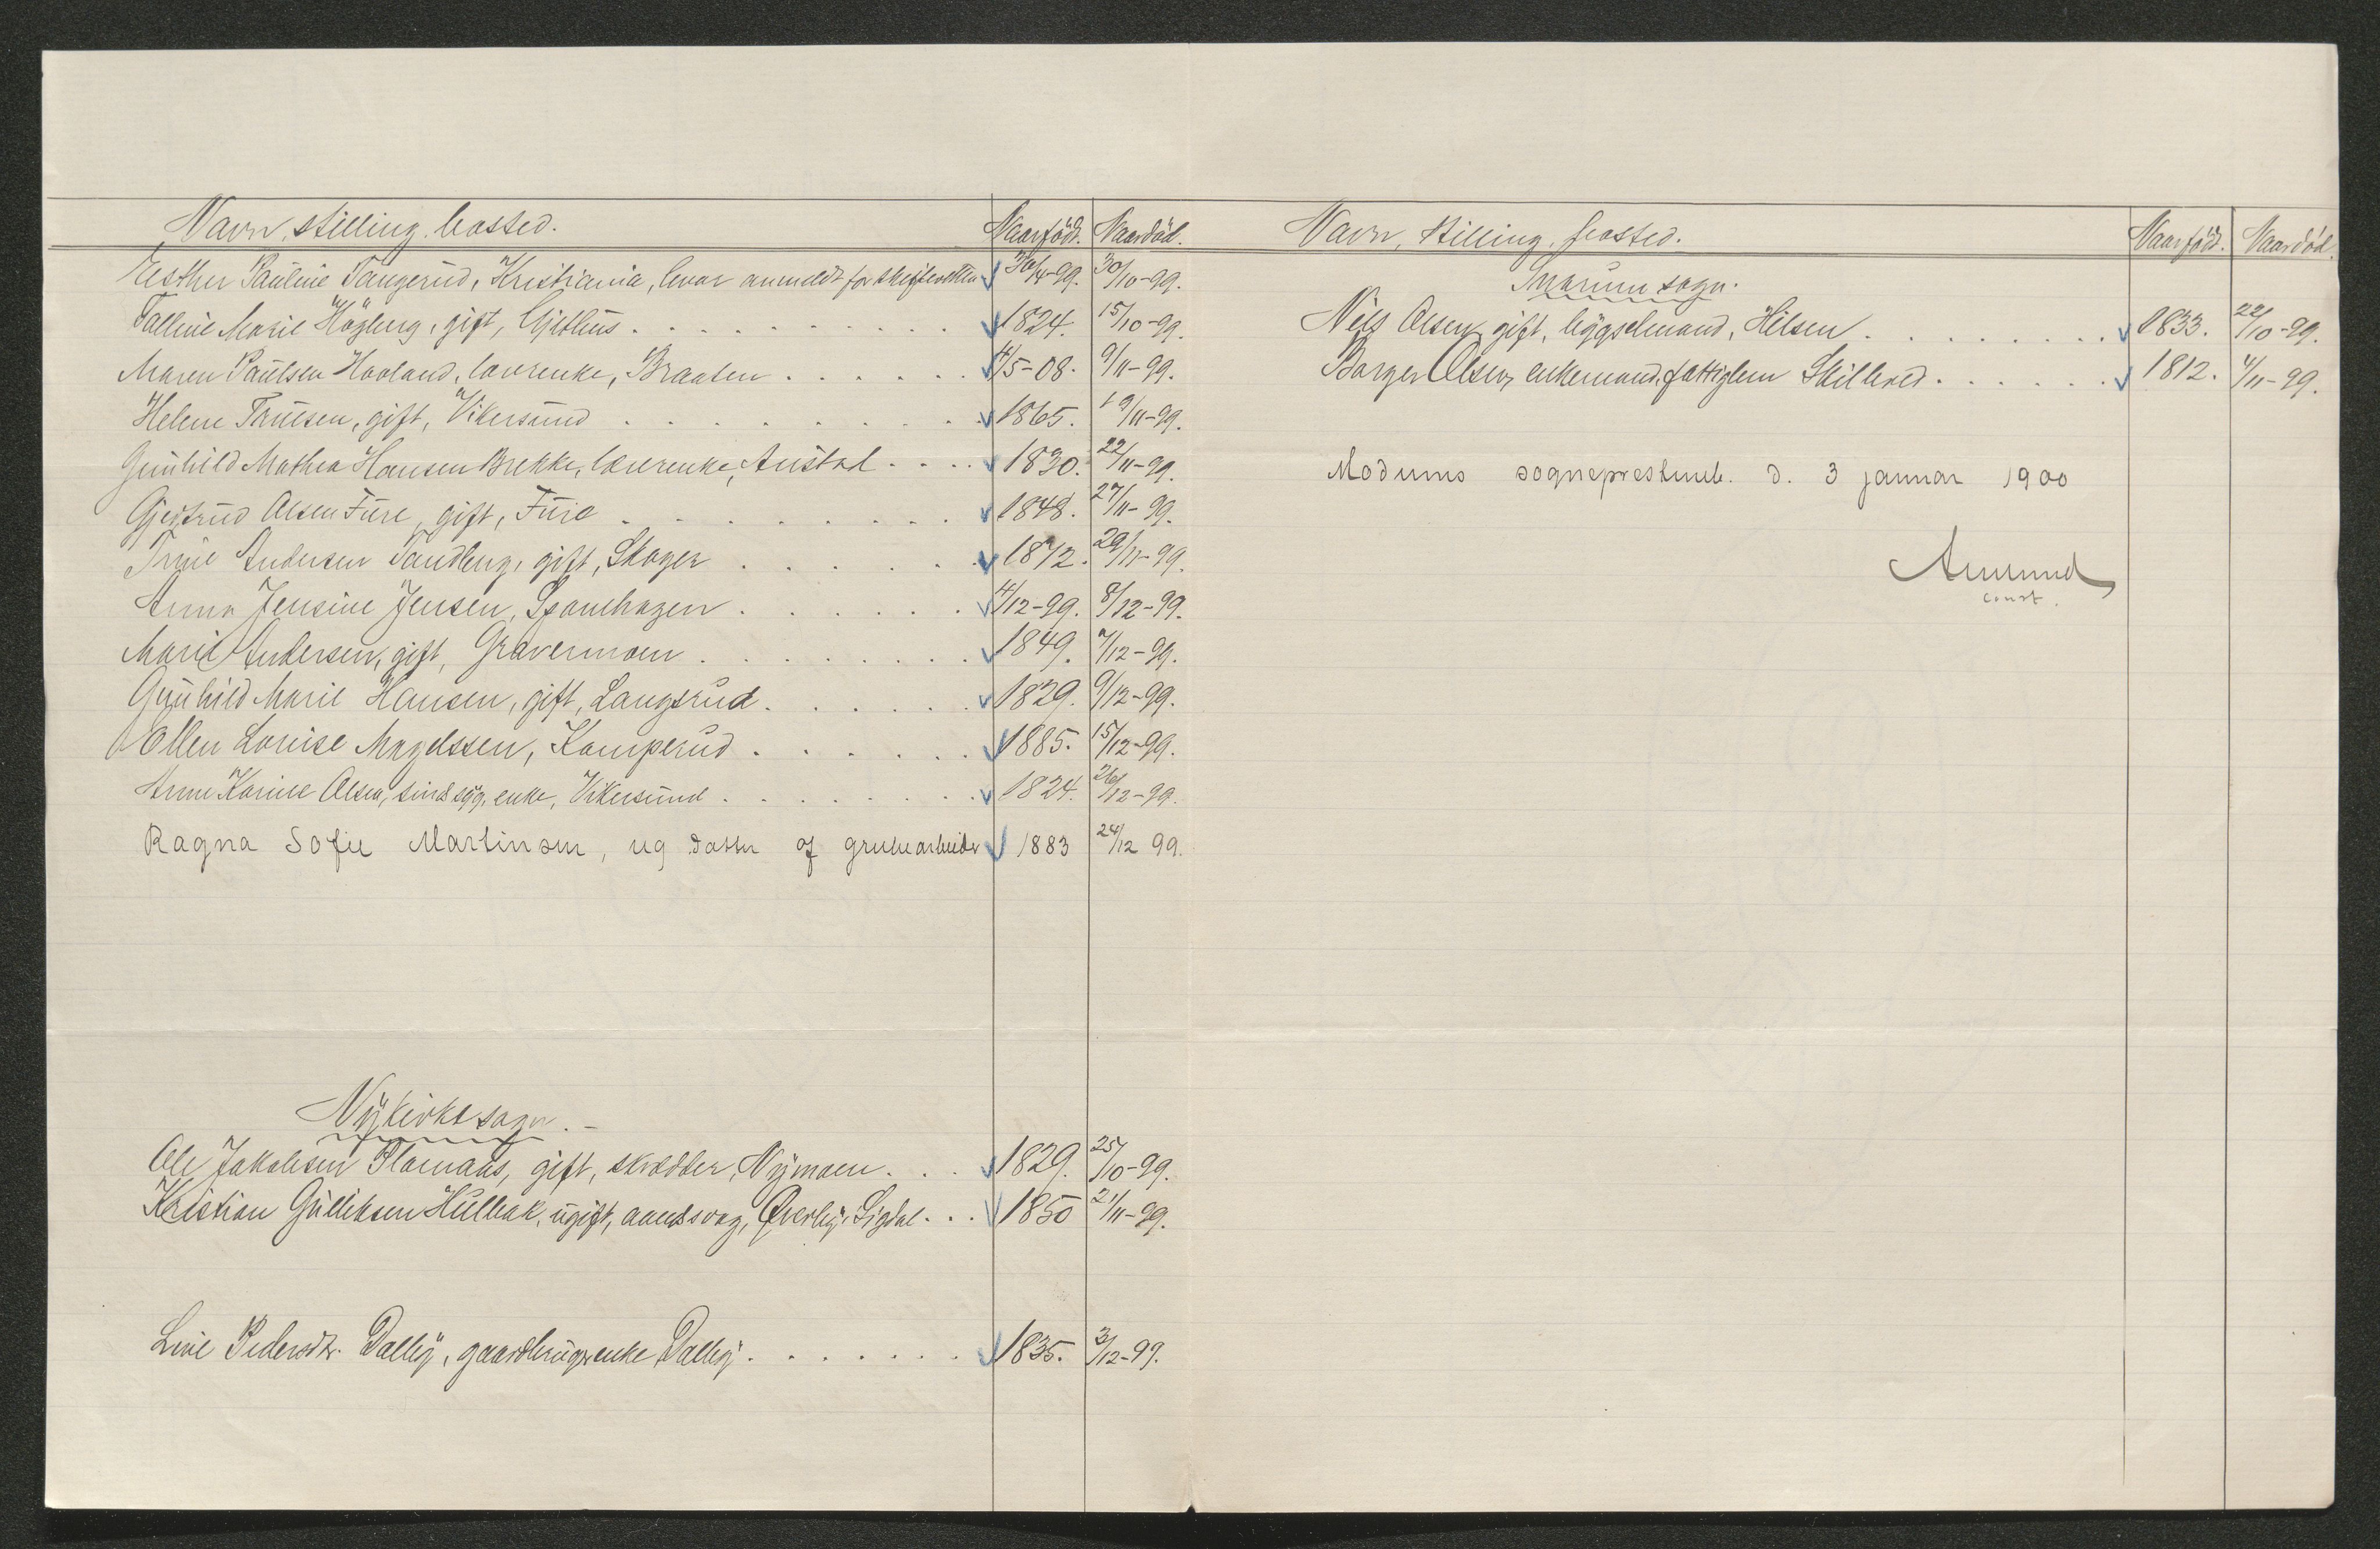 Navn, stilling, bosted. Naar født. Naar død.
Esther Pauline Tangerud, Kristiania, hvor anmeldt for skifteretten 30/4-99. 30/10-99.
Talline Marie Høgberg, gift, Gjethus 1824. 15/10-99.
Maren Paulsen Hovland, læverenke, Braaten 4/5-08. 9/11-99.
Helene Truesen, gift, Vikersund 1865. 19/11-99.
Gunhild Mathea Hansen Brekke, læverenke, Austad 1830. 22/11-99.
Gjertrud Olsen Fure, gift, Fure 1848. 27/11-99.
Trine Andersen Sandberg, gift, Skoger 1872. 29/11-99.
Anna Jensine Jensen, Sponehagen 4/12-99. 8/12-99.
Marie Andersen, gift, Gravermoen 1849. 7/12-99.
Gunhild Marie Hansen, gift, Langerud 1829. 9/12-99.
Ellen Louise Magelssen, Kamperud 1885. 15/12-99.
Anne Karine Olsen, sindssyg, enke, Vikersund 1824. 26/12-99.
Ragna Sofie Martinsen, ug datter af grubearbeider 1883 24/12 99.
Nykirke sogn.
Ole Jakobsen Plomaas, gift, skrædder, Nymoen 1829. 25/10-99.
Kristian Gulliksen Hulbak, ugift, aandssvag, Øverby, Sigdal 1850 21/11-99.
Line Pedersdtr. Dalby, gaardbrugerenke Dalby 1835. 3/12-99.
Navn, stilling, bosted. Naar født. Naar død.
Snarum sogn.
Nils Olsen, gift, bygselmand, Hilsen 1833. 22/10-99.
Borger Olsen, enkemand, fattiglem Skillerud 1812. 4/11-99.
Modums sogneprestemb. d. 3 januar 1900
const.